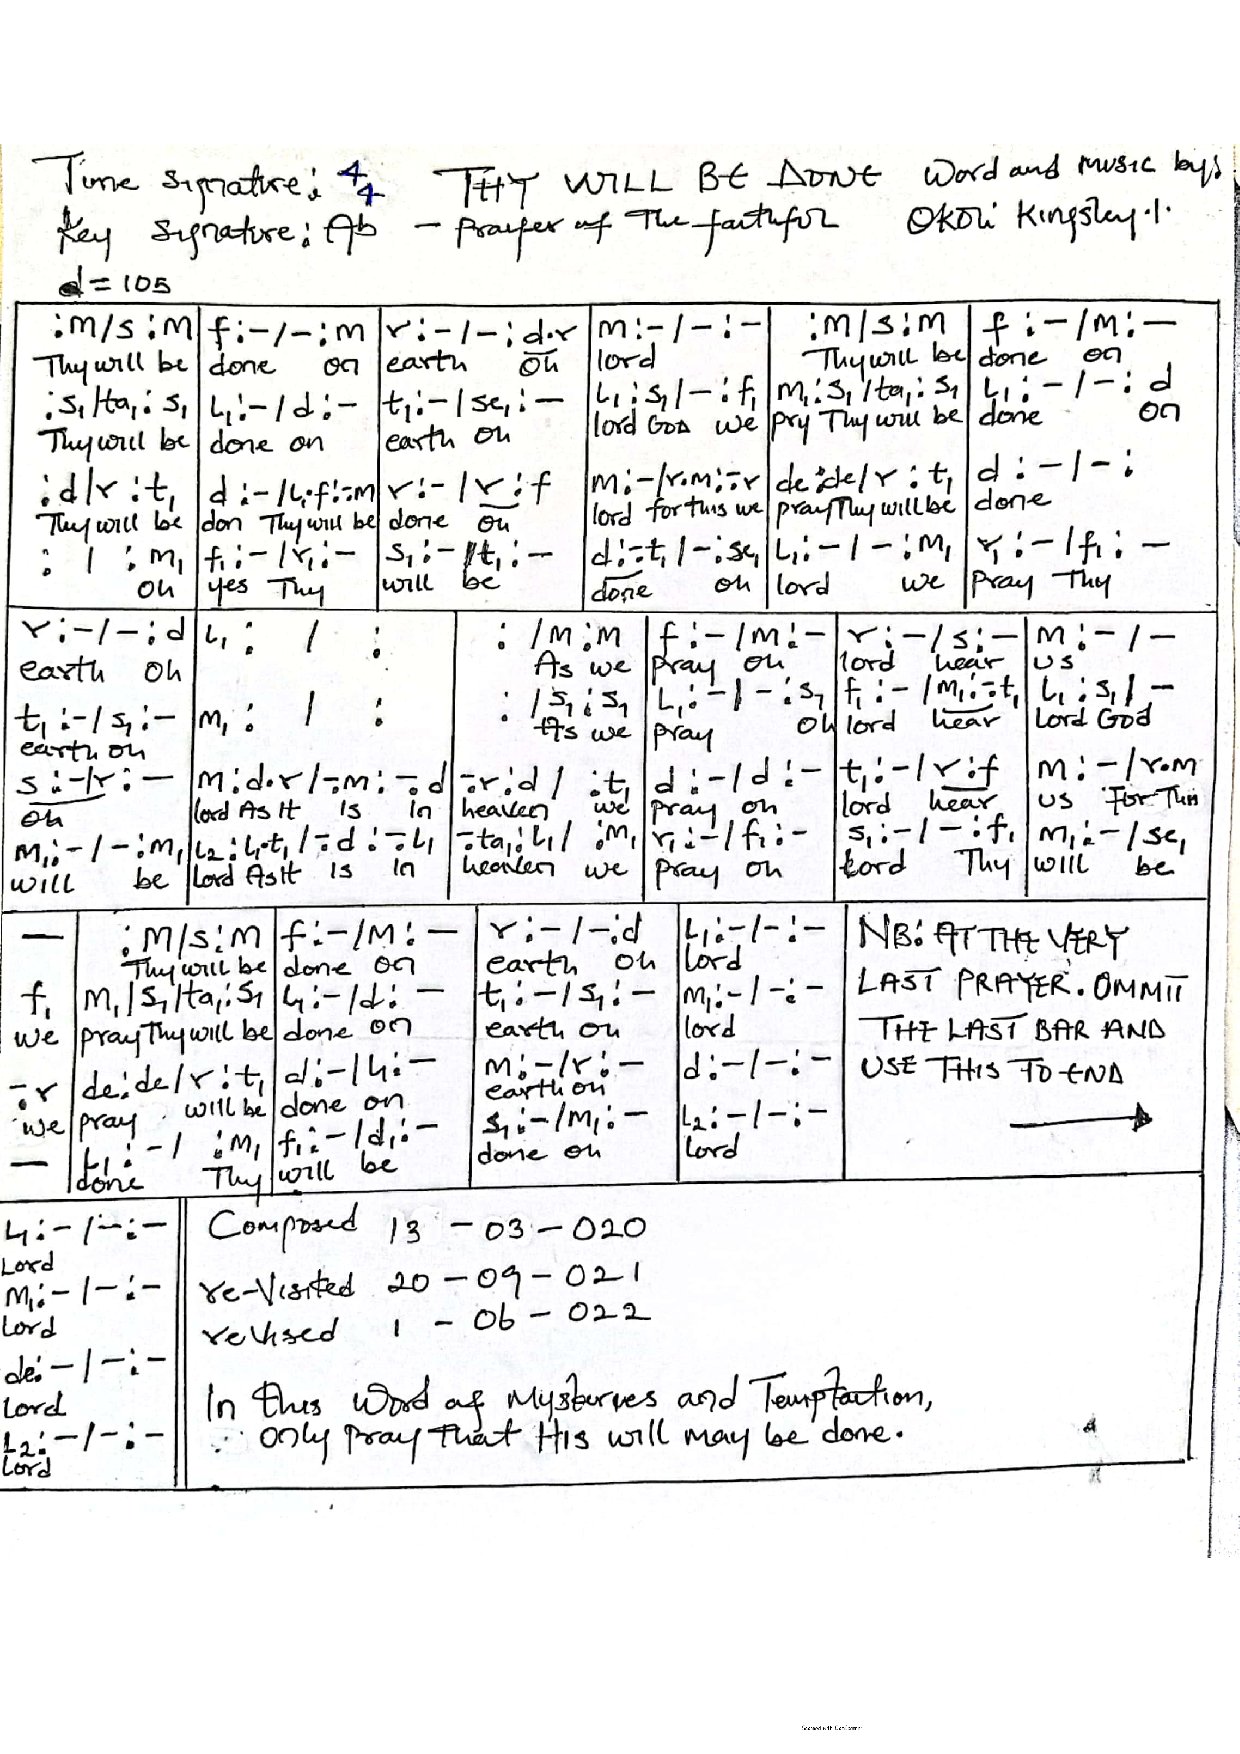 Time Signature: 4/4 THY WILL BE DONE Word and Music by:
Key Signature: Ab – Prayer of The faithful Okoli Kingsley.I.
d = 105
:m/s:m | f:-/-:m | r:-/-:d.r | m:-/-:- | :m/s:m | f:-/m:-
Thy will be | done on | earth oh | lord | Thy will be | done on
:s₁/ta₁:s₁ | L₁:-/d:- | t₁:-/se₁:- | L₁:s₁/-:f₁ | m₁:s₁/ta₁:s₁ | L₁:-/-:d
Thy will be | done on | earth oh | lord GOD we | pry Thy will be | done on
:d/r:t₁ | d:-/L₁.f:-m | r:-/r:f | m:-/r.m:-r | de:de/r:t₁ | d:-/-:
Thy will be | don Thy will be | done oh | lord for this we | pray Thy will be | done
: / :m₁ | f₁:-/r₁:- | s₁:-/t₁:- | d:-t₁/-:se₁ | L₁:-/-:m₁ | r₁:-/f₁:-
oh | yes Thy | will be | done oh | lord we | pray Thy
r:-/-:d | L₁: / : | : /m:m | f:-/m:- | r:-/s:- | m:-/-
earth oh | As we | pray oh | lord hear | us
t₁:-/s₁:- | m₁: / : | : /s₁:s₁ | L₁:-/-:s₁ | f₁:-/m₁:-t₁ | L₁:s₁/-
earth oh | As we | pray oh | lord hear | Lord God
s:-/r:- | m:d.r/-m:-d | -r:d/ :t₁ | d:-/d:- | t₁:-/r:f | m:-/r.m
oh | lord As It is In | heaven we | pray on | lord hear | us For This
m₁:-/-:m₁ | L₂:L₁.t₁/-d:-L₁ | -ta₁:L₁/ :m₁ | r₁:-/f₁:- | s₁:-/-:f₁ | m₁:-/se₁
will be | Lord As It is In | heaven we | pray oh | Lord Thy | will be
- | :m/s:m | f:-/m:- | r:-/-:d | L₁:-/-:- | NB: AT THE VERY
Thy will be | done on | earth oh | Lord
f₁ | m₁/s₁/ta₁:s₁ | L₁:-/d:- | t₁:-/s₁:- | m₁:-/-:- | LAST PRAYER. OMMIT
we | pray Thy will be | done on | earth oh | lord | THE LAST BAR AND
-r | de:de/r:t₁ | d:-/L₁:- | m:-/r:- | d:-/-:- | USE THIS TO END
we | pray will be | done on | earth on
- | L₁:-/ :m₁ | f₁:-/d₁:- | s₁:-/m₁:- | L₂:-/-:-
done Thy | will be | done on | Lord
L₁:-/-:- | Composed 13 - 03 - 020
Lord
m₁:-/-:- | re-Visited 20 - 09 - 021
Lord | revised 1 - 06 - 022
de:-/-:-
Lord | In this Word of Mysteries and Temptation,
L₂:-/-:- | only pray that His will may be done.
Lord